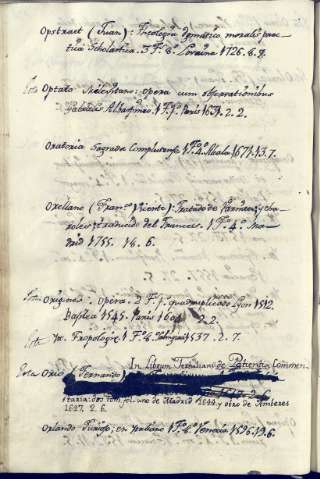 Opstraet (Juan): Theologia Dogmatico moralis prac-
tica Scholastica. 3 F.º 8. Lovaina 1726. 8. 9.
Esta Optato Milevitano: Opera cum observationibus
1 F.º Paris 1631. 2. 2.
Oratoria Sagrada Complutense 1 F.º 4.º Alcala 1671. 13. 7.
Orellano (Fran.co Vicente) Tratado de Barnices, y cha-
roles; traducido del Frances. 1 F.º 4.º Ma-
drid 1755. 16. 6.
Esta Origenes: Opera. 2 F. f.º quadruplicado Lyon 1512.
Basilea 1545. Paris 1604. 2. 2
Este 1 F.º 8. 1537. 2. 7.
Esta Orio (Fernando) In Librum Tertuliani de Patientia Commen-
taria: dos tom. fol. uno de Madrid 1644. y otro de Amberes
1647. 2. 6.
Orlando Furioso; en Italiano 1 F.º 8.º Venecia 1536. 13. 6.